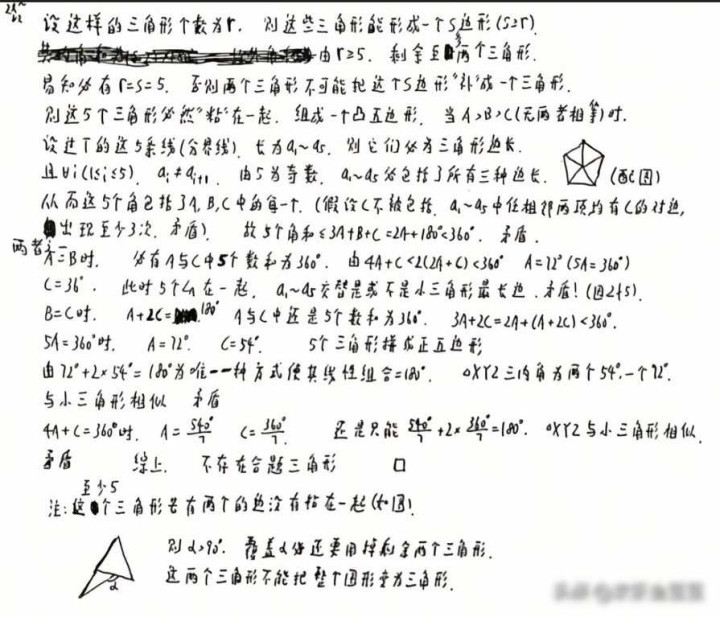 设这样的三角形个数为r. 则这些三角形能形成一个S边形(S≥r).
由r≥5. 剩余至多两个三角形.
易知必有r=S=5. 否则两个三角形不可能把这个S边形"补"成一个三角形.
则这5个三角形必然"粘"在一起. 组成一个凸五边形. 当A>B>C(无两者相等)时.
设过T的这5条线(分界线). 长为a₁~a₅. 则它们必为三角形边长.
且∀i(1≤i≤5). aᵢ≠aᵢ₊₁. 由5为奇数. a₁~a₅必包括了所有三种边长. (配图)
从而这5个角包括了A,B,C中的每一个. (假设C不被包括. a₁~a₅中任相邻两项均有C的对边,
出现至少3次. 矛盾). 故5个角和≤3A+B+C=2A+180°<360°. 矛盾.
两者之一
A=B时. 必有A与C中5个数和为360°. 由4A+C<2(2A+C)<360° A=72°(5A=360°)
C=36°. 此时5个A在一起. a₁~a₅交替是或不是小三角形最长边. 矛盾!(因2∤5).
B=C时. A+2C=180° A与C中还是5个数和为360°. 3A+2C=2A+(A+2C)<360°.
5A=360°时. A=72°. C=54°. 5个三角形拼成正五边形
由72°+2×54°=180°为唯一一种方式使其线性组合=180°. △XYZ三内角为两个54°.一个72°.
与小三角形相似 矛盾
4A+C=360°时. A=540°/7 C=360°/7 还是只能 540°/7+2×360°/7=180°. △XYZ与小三角形相似.
矛盾 综上. 不存在合题三角形 □
至少5
注: 这个三角形若有两个的边没有粘在一起(如图)
α
则α>90°. 覆盖α处还要用掉剩余两个三角形.
这两个三角形不能把整个图形变为三角形.